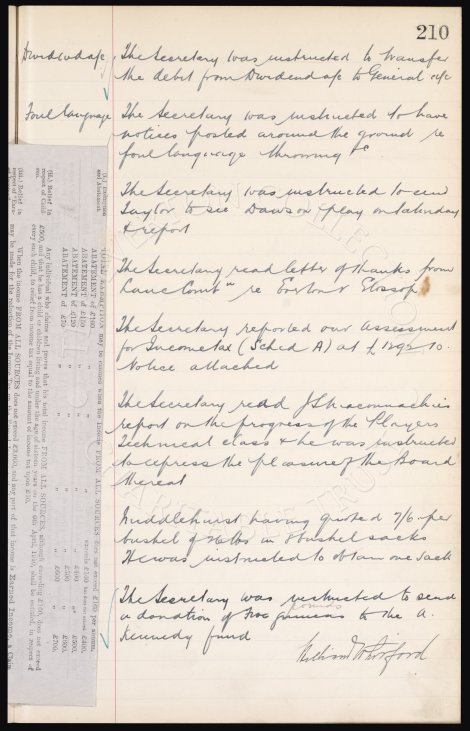 210
Dividend a/c The Secretary was instructed to transfer
the debit from Dividend a/c to General a/c
Foul language The Secretary was instructed to have
notices posted around the ground re
foul language throwing &c
The Secretary was instructed to send
Taylor to see Dawson play on Saturday
& report
The Secretary read letter of thanks from
Lanc Comb re Everton v Glossop
The Secretary reported our assessment
for Income tax (Sched A) at £1292-10.
Notice attached
The Secretary read J Strachonnachies
report on the progress of the Players
Technical class & he was instructed
to express the pleasure of the Board
thereat
Middlehurst having quoted 7/6 per
bushel
He was instructed to obtain one sack
The Secretary was instructed to send
a donation of two guineas to the A.
pounds
Kennedy fund
(i.) Exemption
and Abatement.
TOTAL EXEMPTION may be claimed when the Income FROM ALL SOURCES does not exceed £160 per annum.
ABATEMENT of £160
ABATEMENT of £150
ABATEMENT of £120
ABATEMENT of £70
exceeds £160 but does not exceed £400.
£400 £500.
£500 £600.
£600 £700.
(ii.) Relief in
respect of Child-
ren.
Any individual who claims and proves that his total income FROM ALL SOURCES, although exceeding £160, does not exceed
£500, and that he has a child or children living and under the age of sixteen years on the 6th April, 1910, shall be entitled, in respect of
every such child, to relief from income tax equal to the amount of income tax upon £10.
(iii.) Relief in
When the income FROM ALL SOURCES does not exceed £2,000, and any part of that income is Earned Income, a Claim